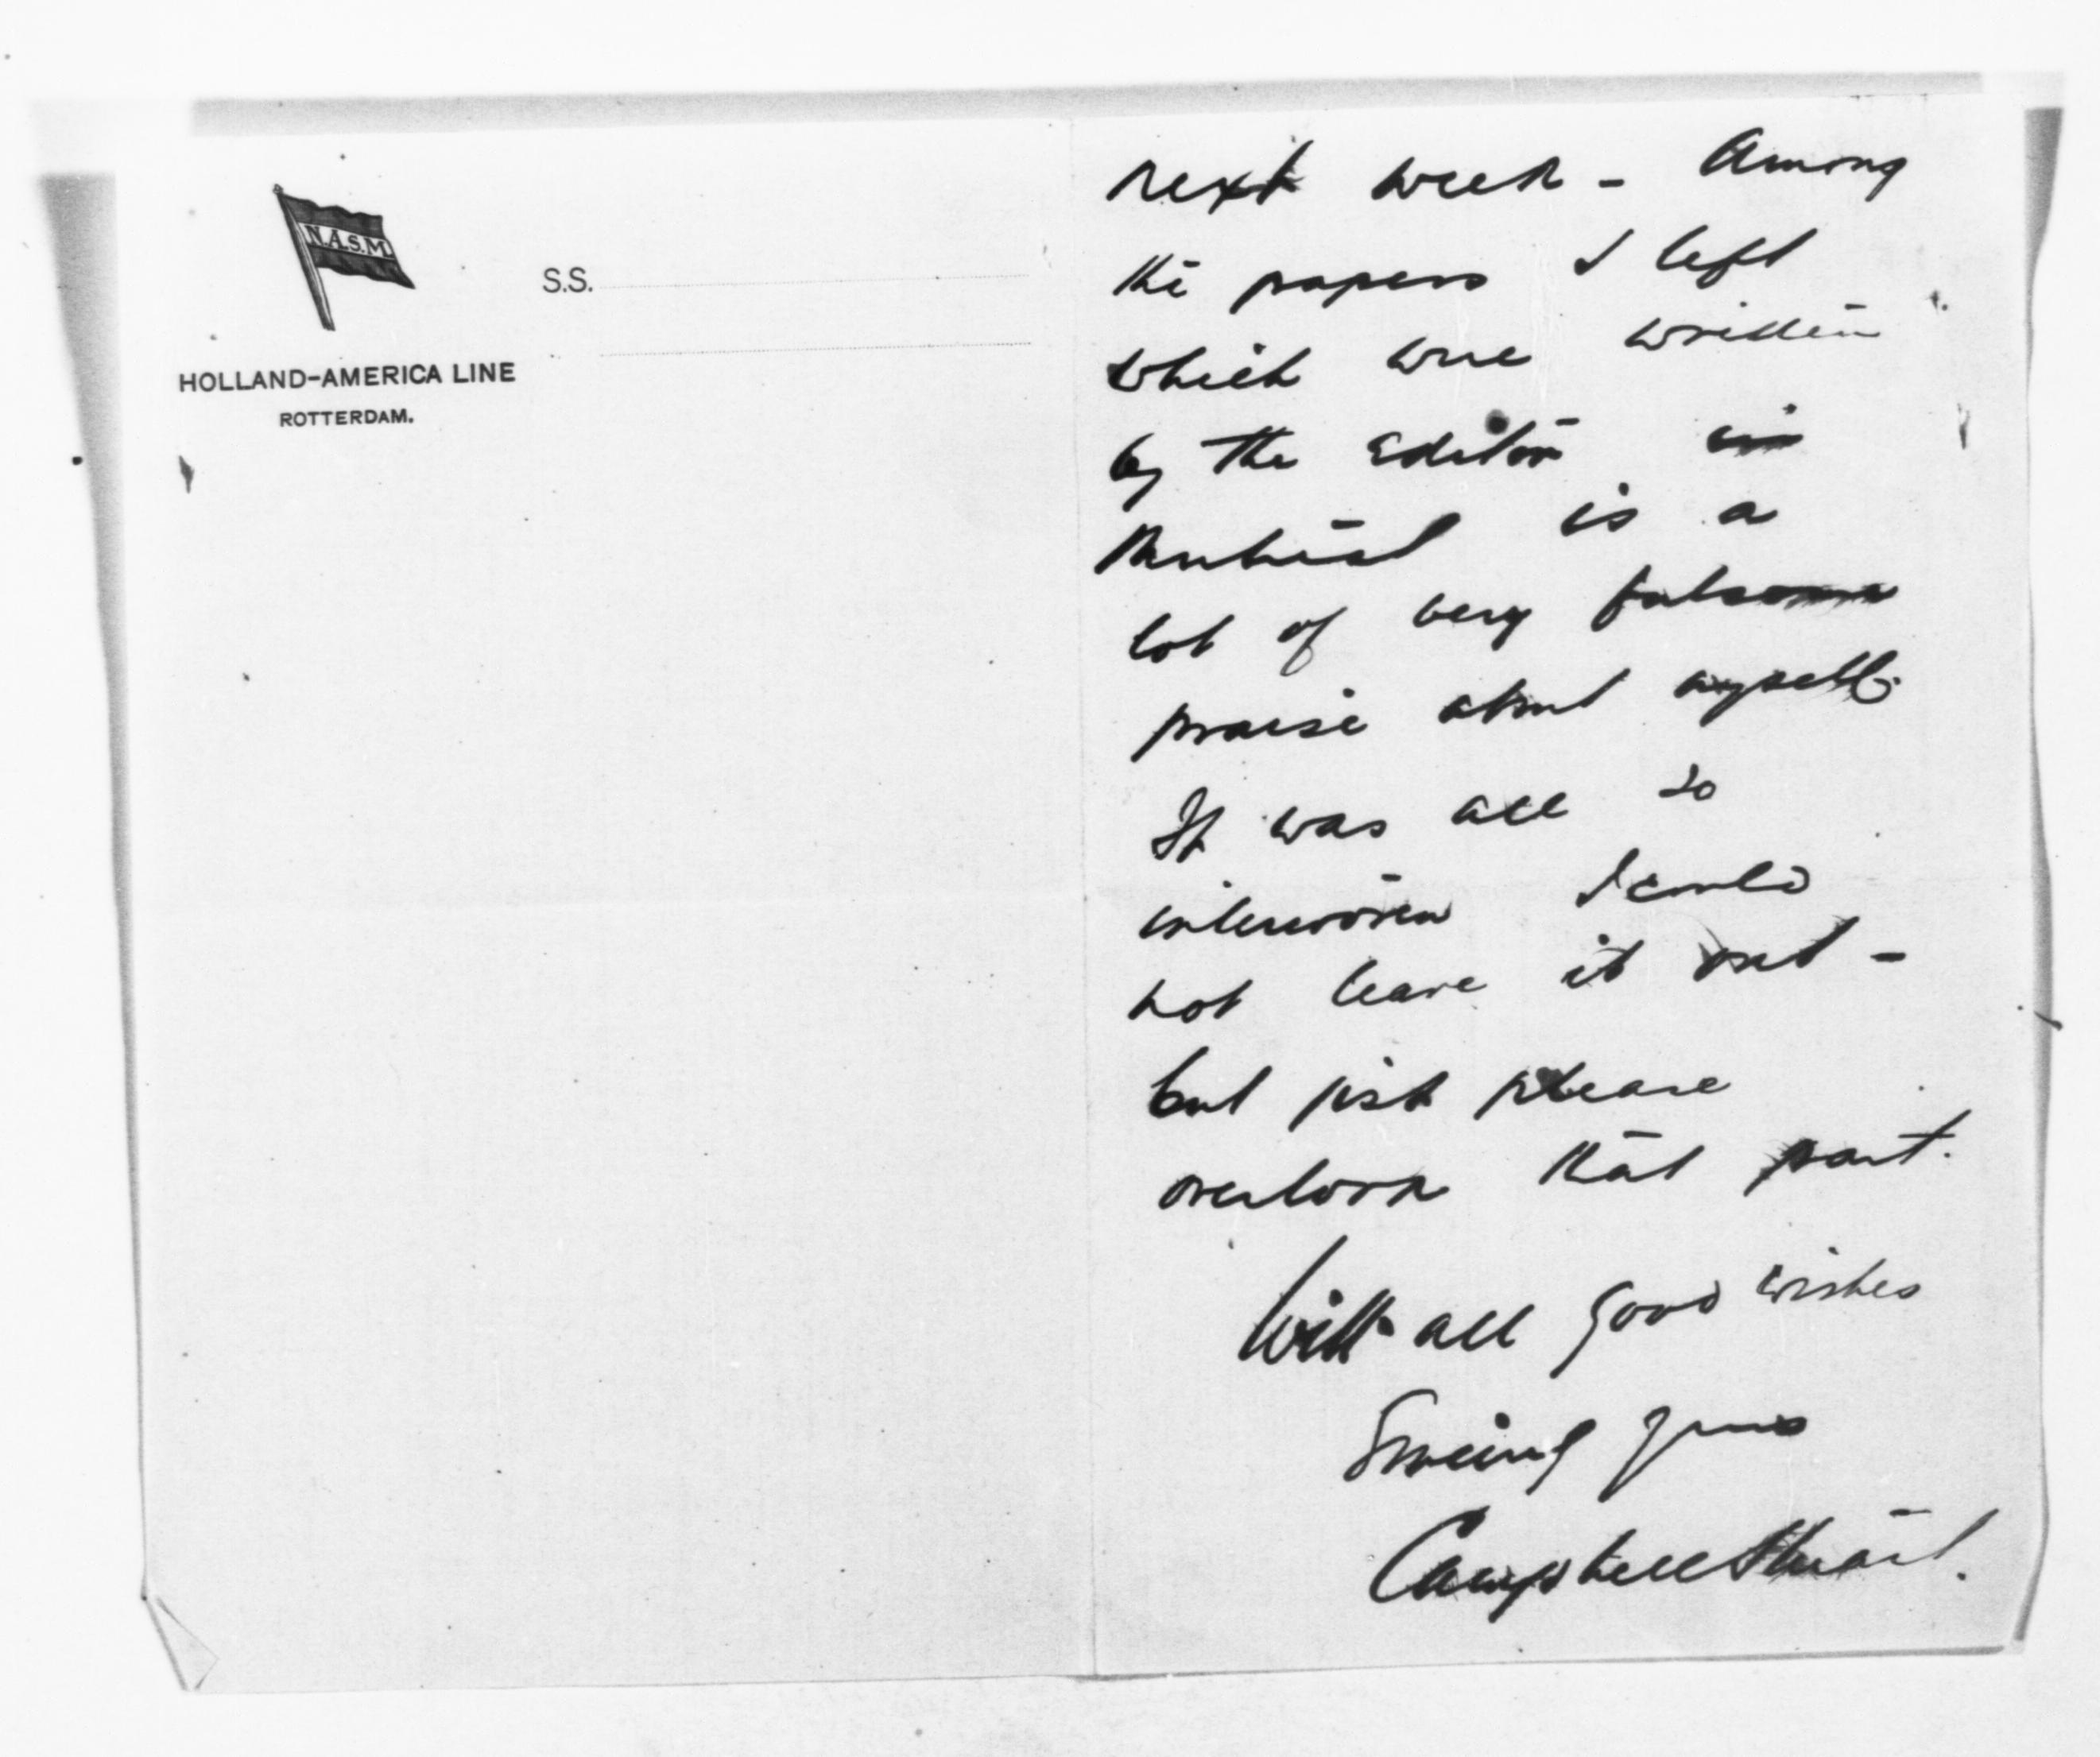 N.A.S.M.
S.S.
HOLLAND-AMERICA LINE
ROTTERDAM.
next week - Among
the papers I left
which were written
by the Editor in
Montreal is a
lot of very fulsome
praise about myself.
It was all so
interwoven I could
not leave it out -
but just please
overlook that part.
With all good wishes
Sincerely yours
Campbell Stuart.